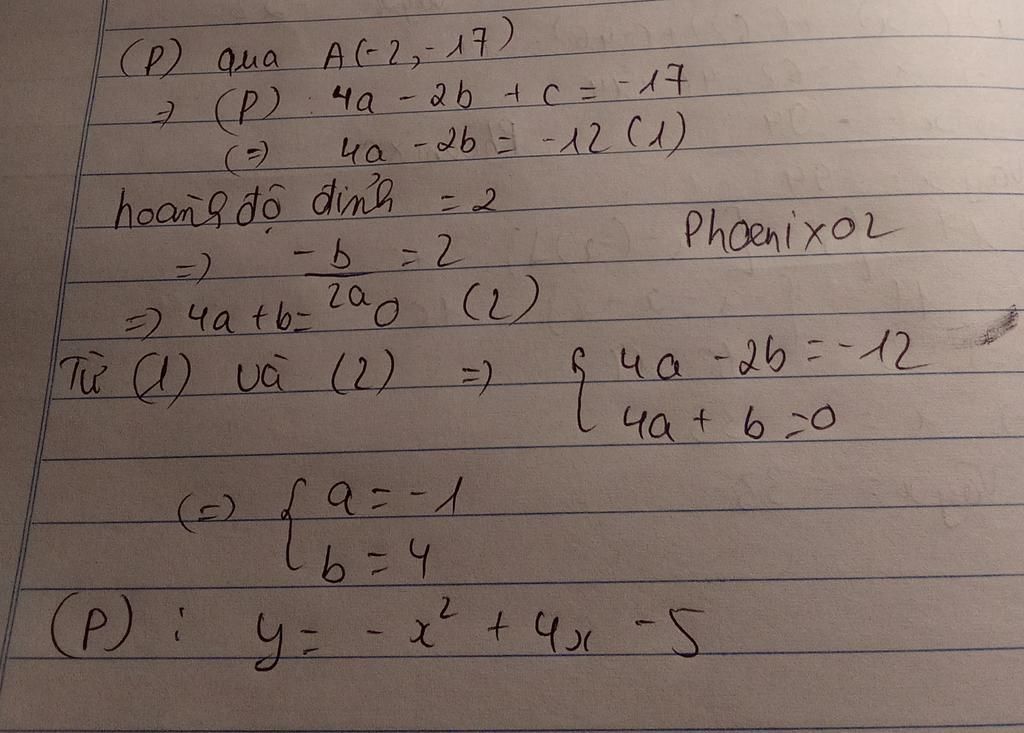 (P) qua A(-2,-17)
=> (P) : 4a - 2b + c = -17
(=) 4a - 2b = -12 (1)
hoành độ đỉnh = 2
=) -b/2a = 2
Phoenix02
=) 4a + b = 0 (2)
Từ (1) và (2) =) { 4a - 2b = -12
4a + b = 0
(=) { a = -1
b = 4
(P) : y = -x² + 4x - 5